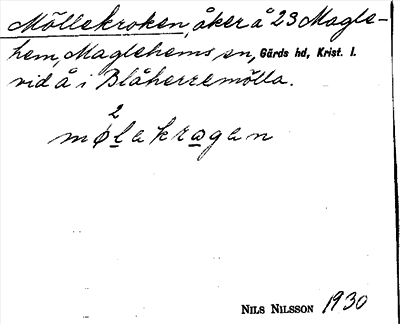 Möllekroken, åker å 23 Magle-
hem, Maglehems sn, Gärds hd, Krist. l.
vid å i Blåherremölla.
2
møl̲a kra̲gan
NILS NILSSON 1930